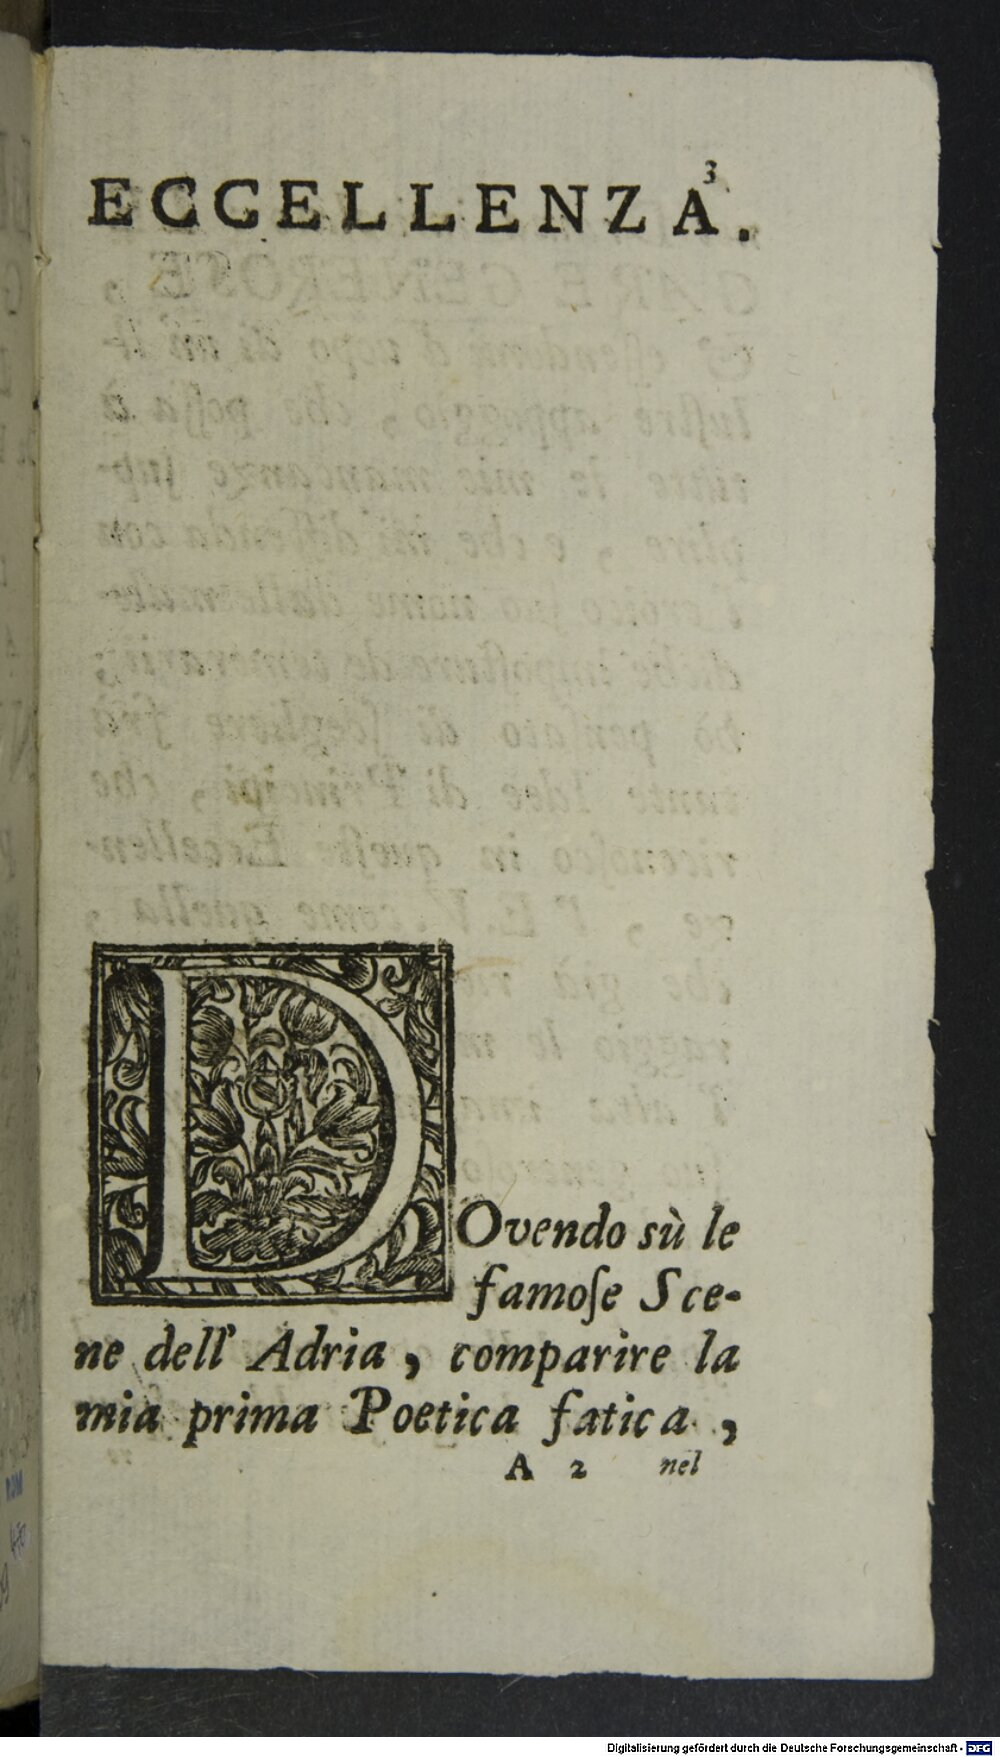 3
ECCELLENZA.
DOvendo sù le
famoſe Sce-
ne dell' Adria, comparire la
mia prima Poetica fatica,
A 2 nel
Digitalisierung gefördert durch die Deutsche Forschungsgemeinschaft - DFG